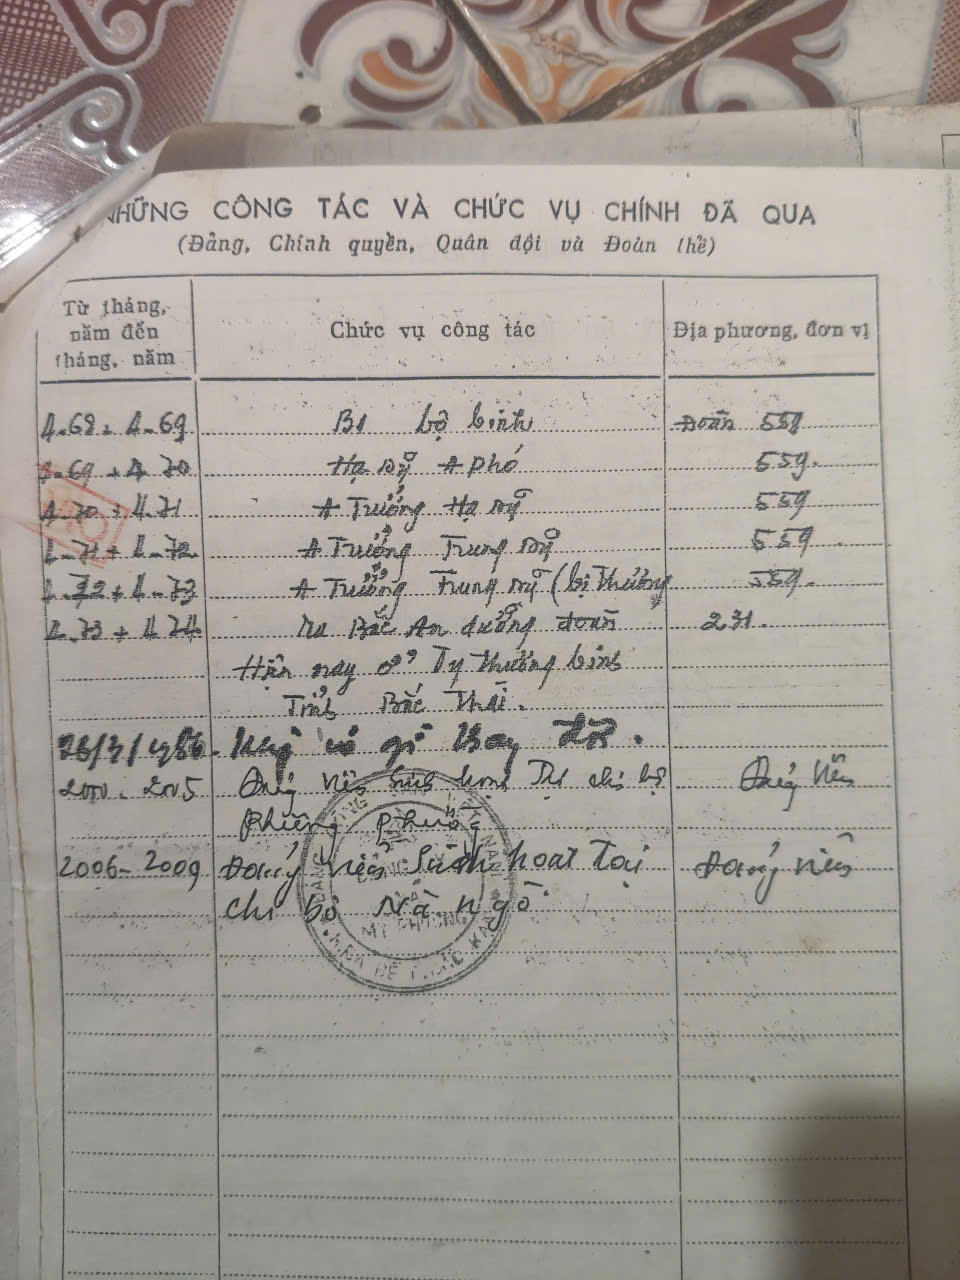 NHỮNG CÔNG TÁC VÀ CHỨC VỤ CHÍNH ĐÃ QUA
(Đảng, Chính quyền, Quân đội và Đoàn thể)
Từ tháng, năm đến tháng, năm Chức vụ công tác Địa phương, đơn vị
4-68 + 4-69 B1 bộ binh Đoàn 559
4-69 + 4-70 Hạ sỹ A phó 559.
4-70 + 4-71 A Trưởng Hạ sỹ 559
4-71 + 4-72 A Trưởng Trung sỹ 559
4-72 + 4-73 A Trưởng Trung sỹ (bị thương 559.
4-73 + 4-74 ra Bắc An dưỡng đoàn 231.
Hiện nay ở Ty thương binh
Tỉnh Bắc Thái.
/1986 có gì thay đổi.
2000-2005 Đảng viên sinh hoạt Tại chi bộ Đảng viên
Phiêng phường
2006-2009 Đảng viên sinh hoạt Tại Đảng viên
chi bộ Nà ngò
MỸ PHƯƠNG